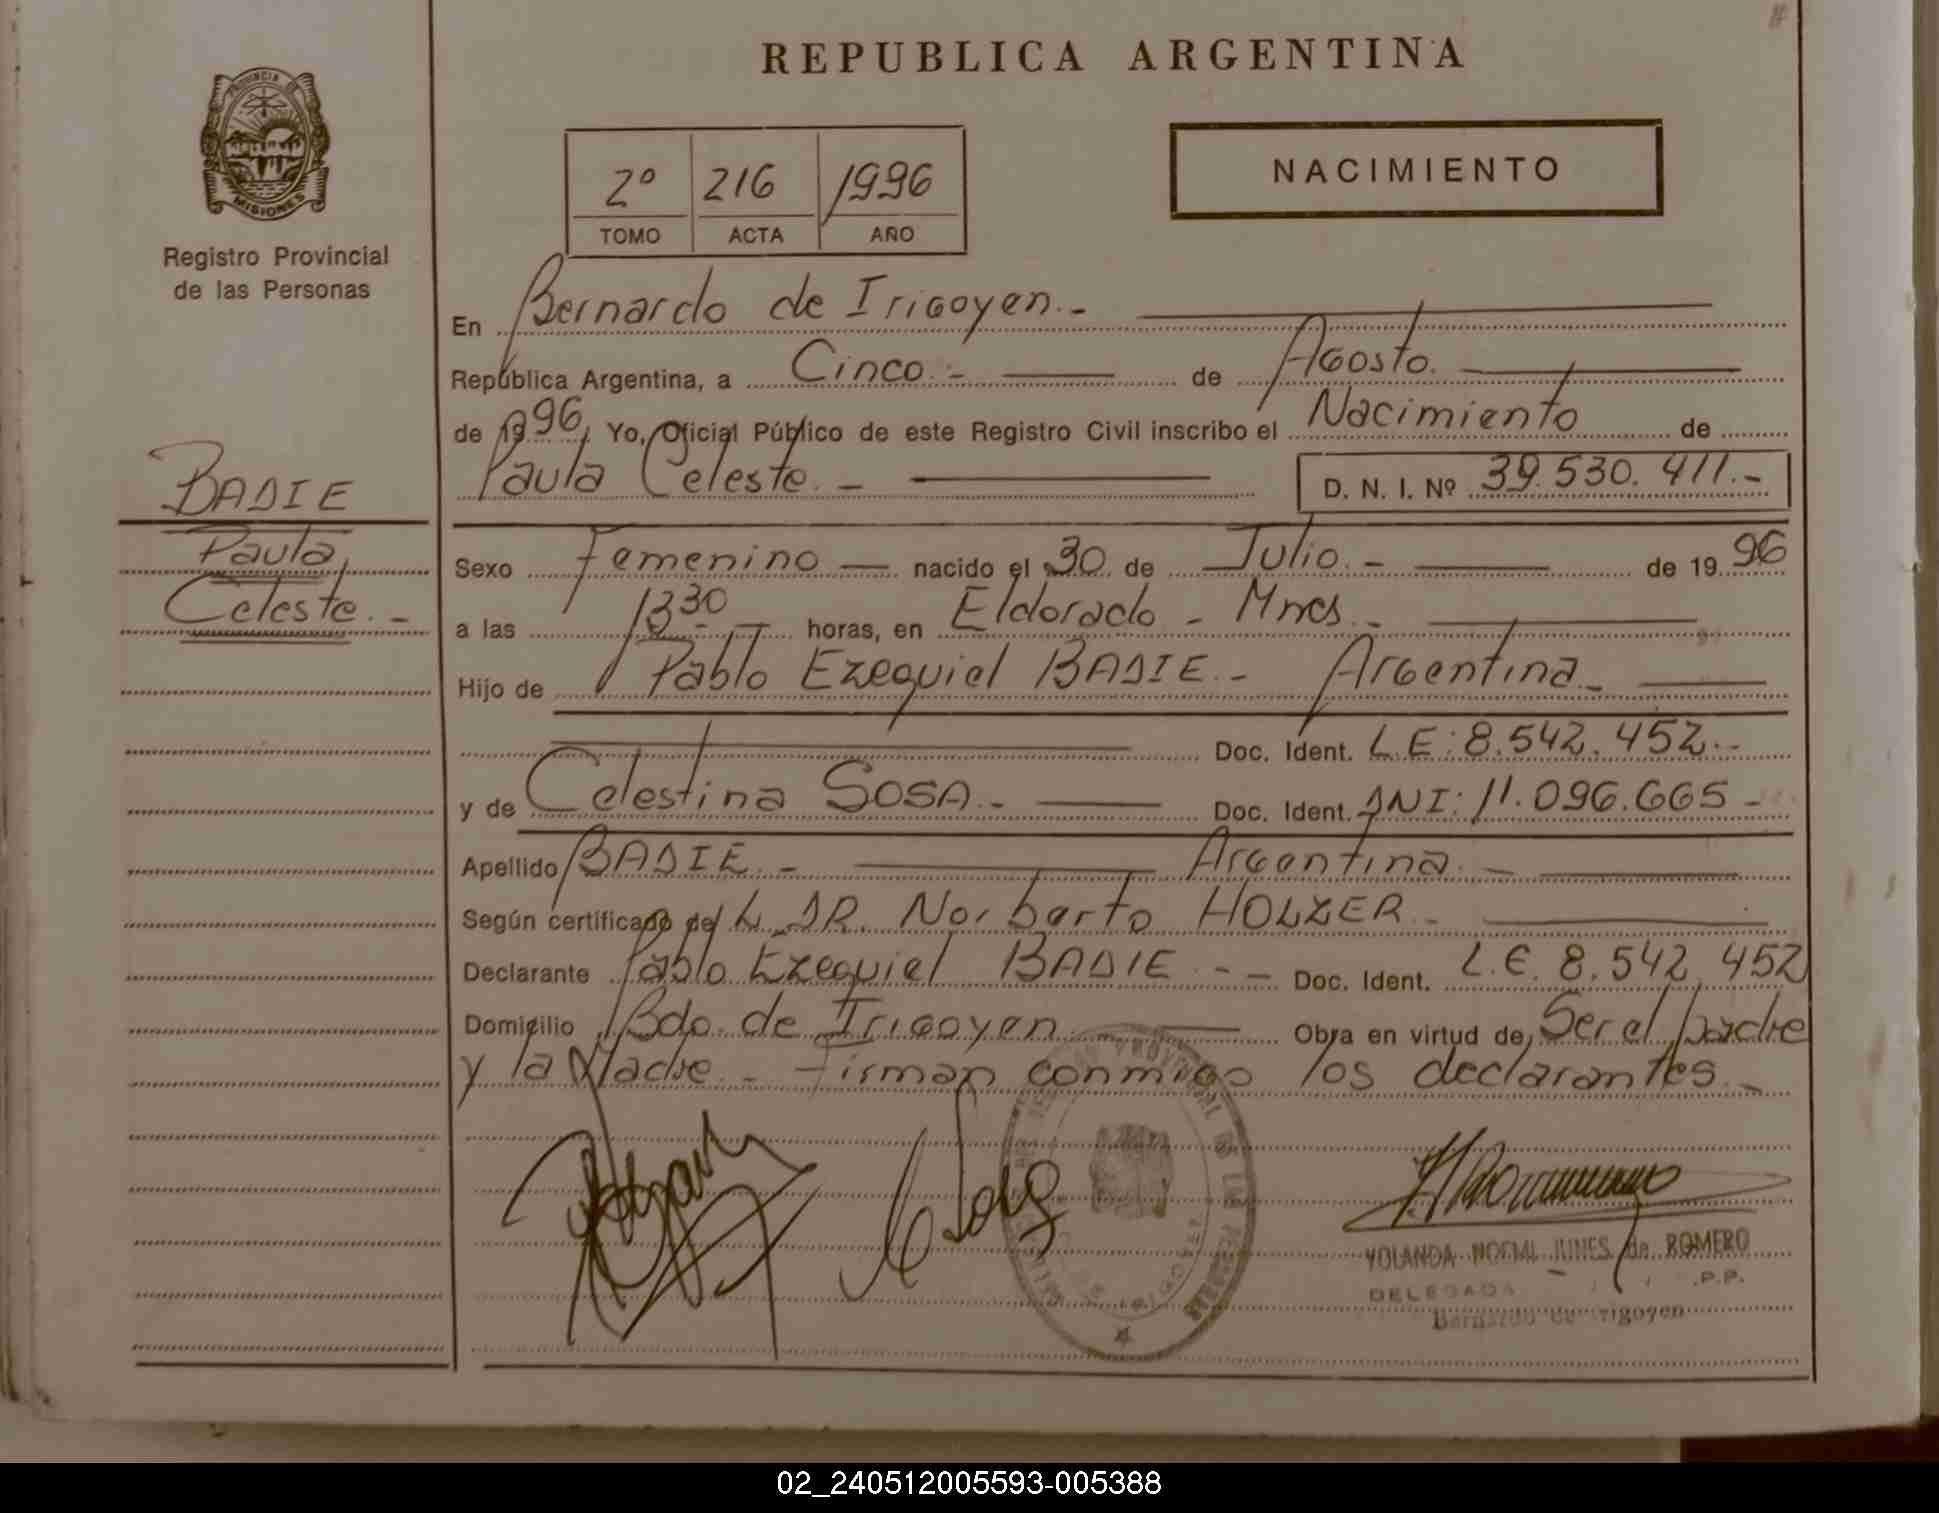 REPUBLICA ARGENTINA
PROVINCIA DE
MISIONES
Registro Provincial
de las Personas
NACIMIENTO
2º 216 1996
TOMO ACTA AÑO
En Bernardo de Irigoyen.-
República Argentina, a Cinco.- de Agosto.
de 1996, Yo, Oficial Público de este Registro Civil inscribo el Nacimiento de
Paula Celeste.- D. N. I. Nº 39.530.411.-
BADIE
Paula
Celeste.-
Sexo Femenino nacido el 30 de Julio.- de 1996
a las 13 30 horas, en Eldorado - Mnes.-
Hijo de Pablo Ezequiel BADIE.- Argentina.-
Doc. Ident. L.E: 8.542.452.-
y de Celestina SOSA.- Doc. Ident. DNI: 11.096.665-
Apellido BADIE.- Argentina.-
Según certificado del L DR. Norberto HOLZER.-
Declarante Pablo Ezequiel BADIE.-- Doc. Ident. L.E. 8.542.452
Domicilio Bdo. de Irigoyen Obra en virtud de Ser el padre
y la Madre.- Firman conmigo los declarantes.-
YOLANDA NOEMI JUNES de ROMERO
DELEGADA P.P.
Bernardo de Irigoyen
02_240512005593-005388